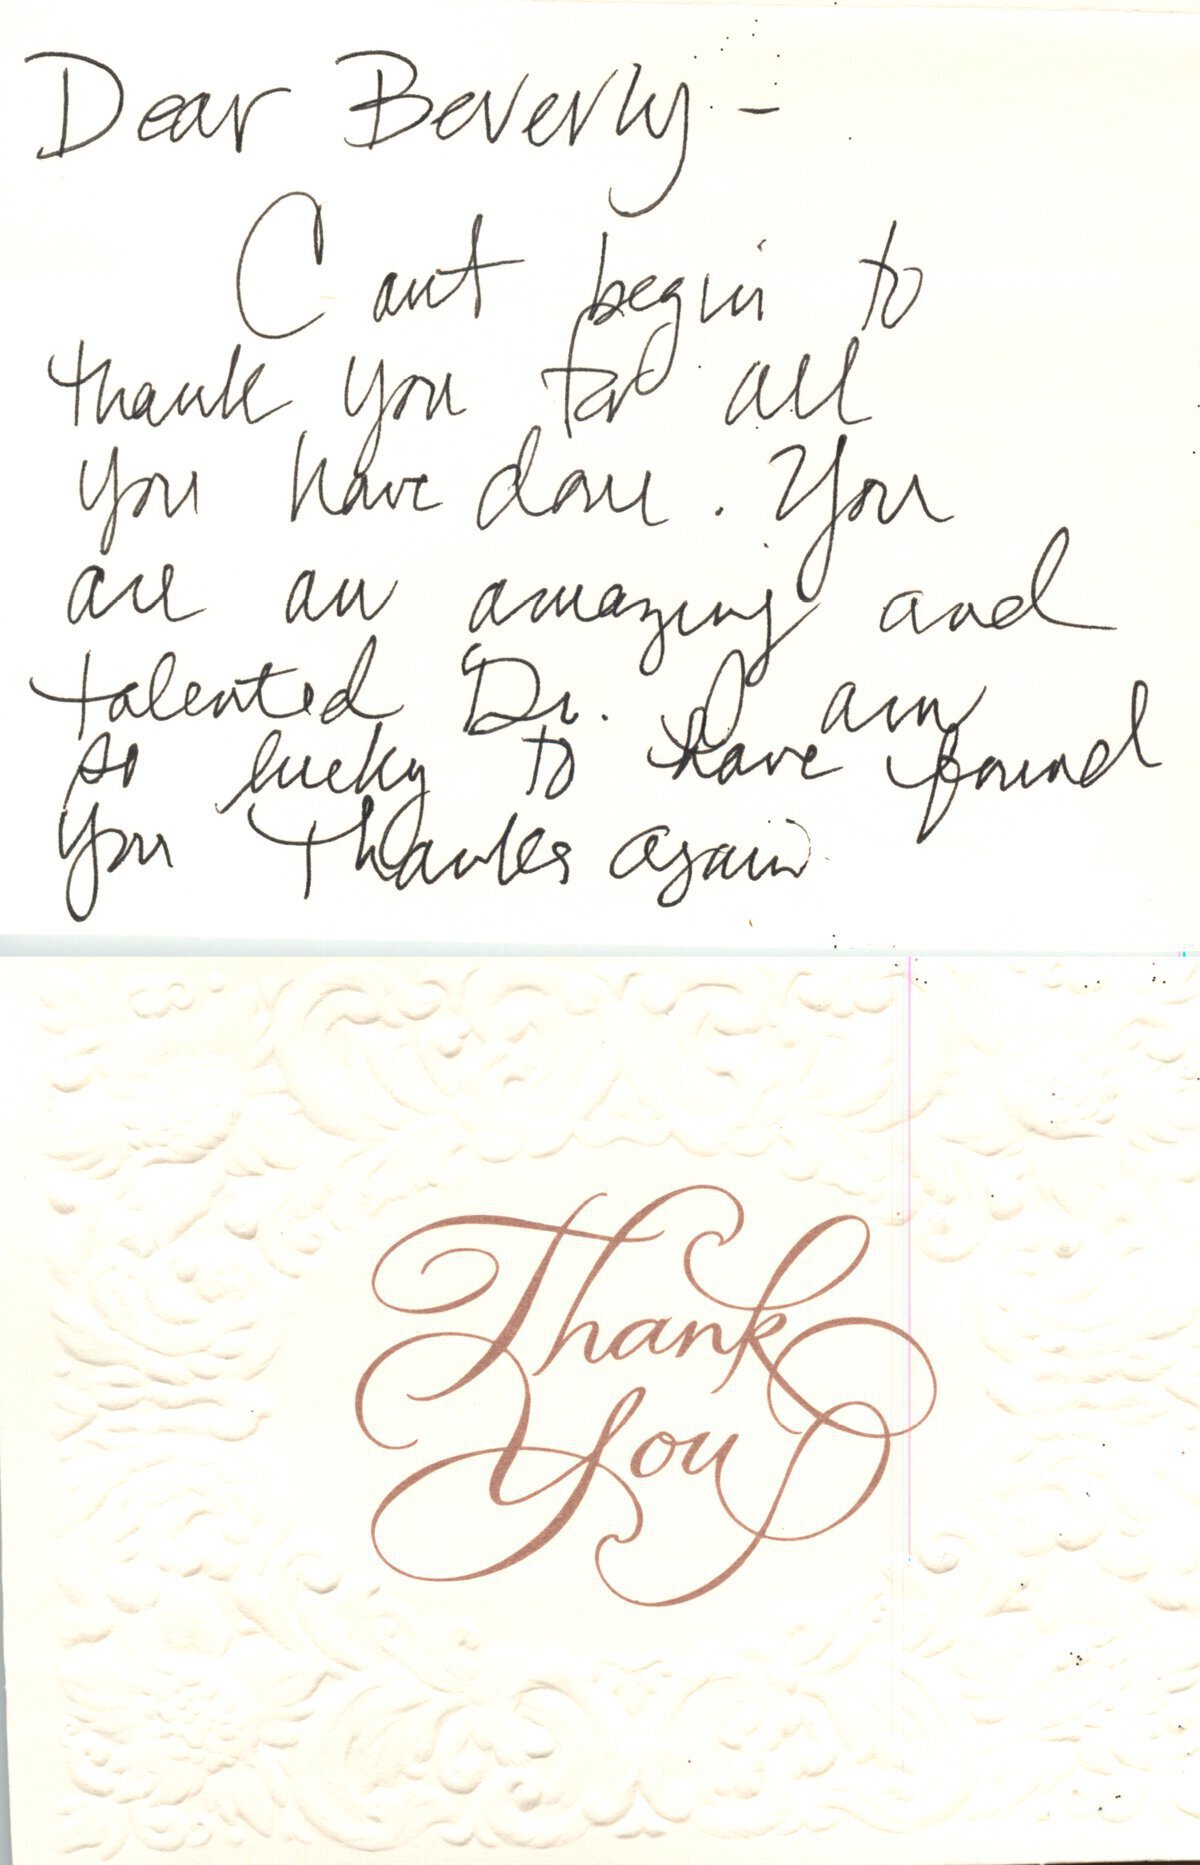 Dear Beverly -
Cant begin to
thank you for all
you have done. You
are an amazing and
talented Dr. I am
so lucky to have found
you Thanks again
Thank
You